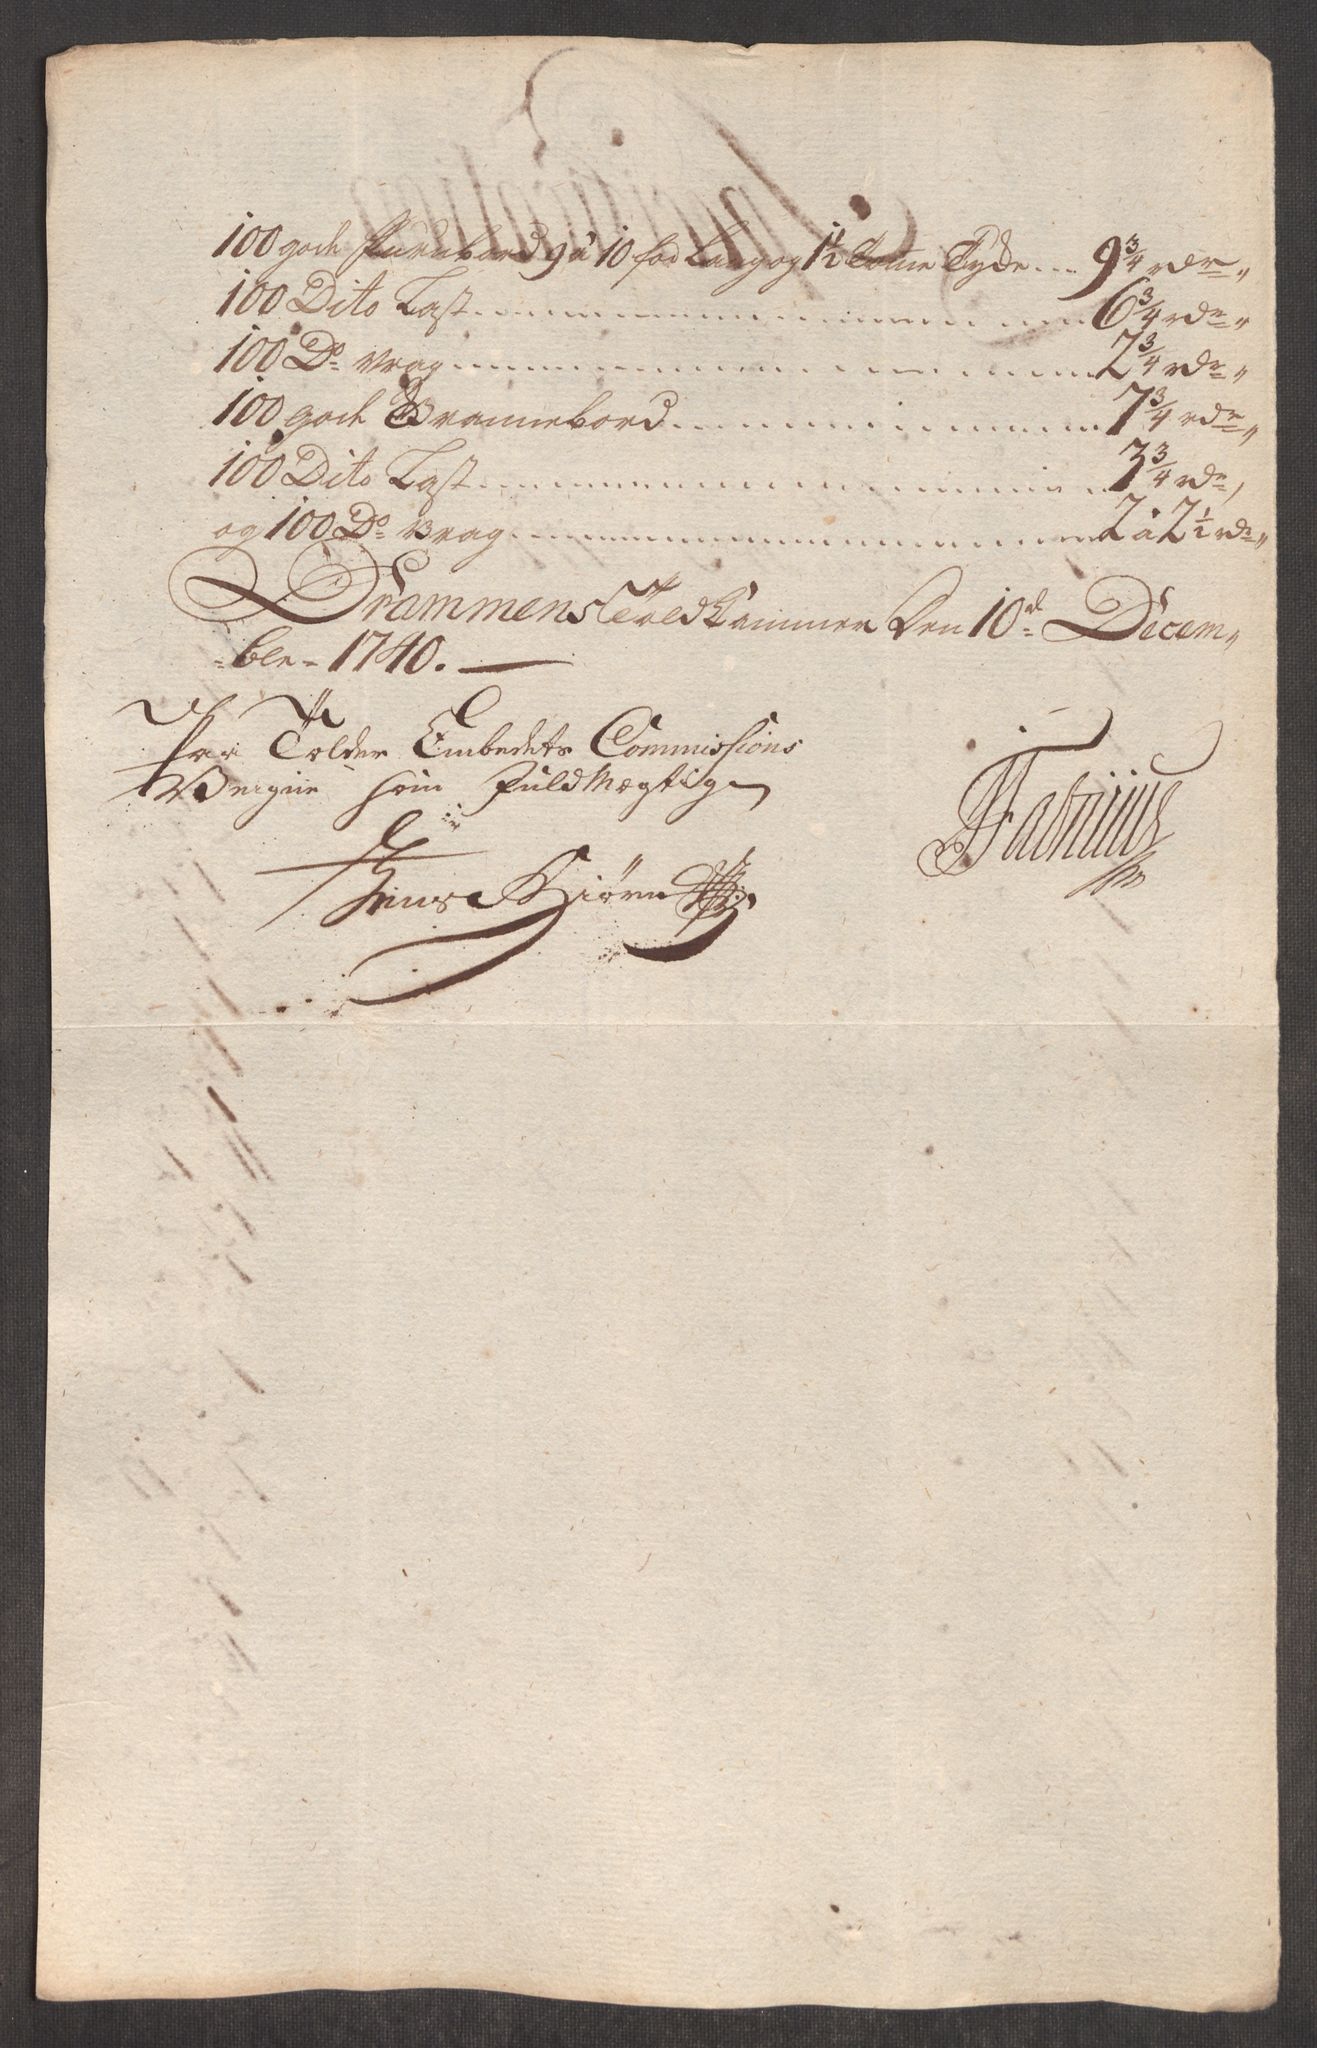 100 gode Furubord 9 à 10 fod Lang og 1½ Tome Tyde .... 9¾ rdr
100 Dito Last ........ 6¾ rdr
100 Do Vrag ........ 2¾ rdr
100 gode Granebord ........ 7¾ rdr
100 Dito Last ........ 3¾ rdr,
og 100 Do Vrag ........ 2 à 2½ rdr
Drammens Toldkammer Den 10d Decem-
-ber 1740.
Paa Tolder Embedets Commissions
Veigne som Fuldmægtig
Biørn
Fabritius